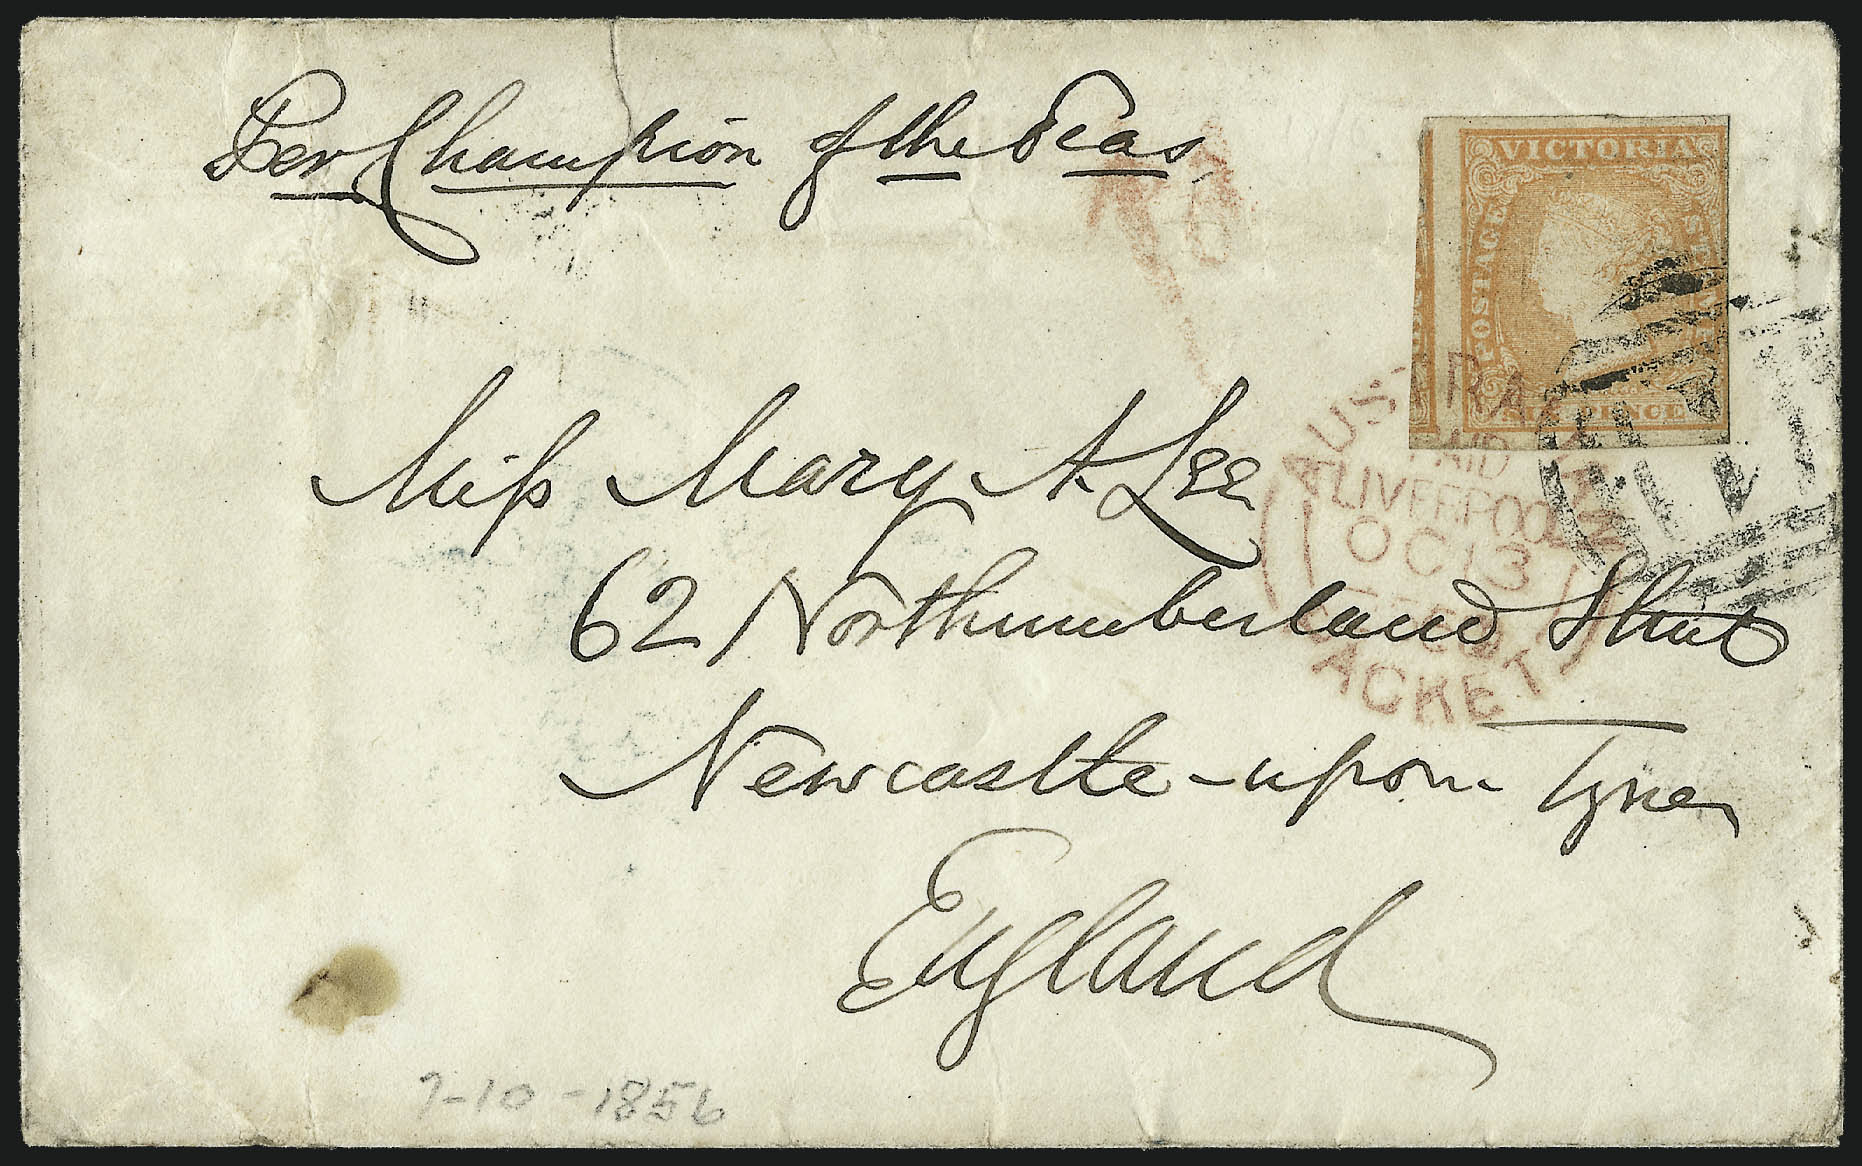 Per Champion of the Seas,
VICTORIA
POSTAGE
SIX PENCE
Miss Mary A. Lee
AUSTRALIAN
PAID
LIVERPOOL
OC 13
PACKET
62 Northumberland Street
Newcastle-upon-Tyne
England
7-10-1856